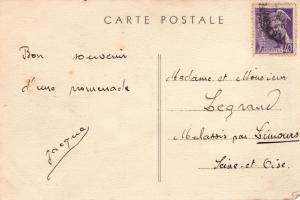 CARTE POSTALE
Bon souvenir
d'une promenade
Jacques
Madame et Monsieur
Legrand
Malassis par Limours
Seine-et-Oise.